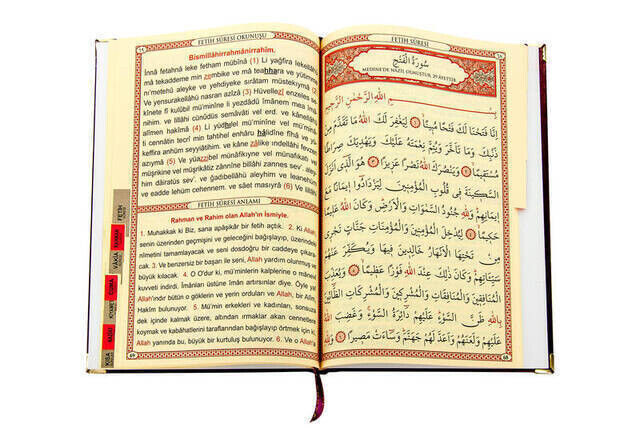 FETİH SÛRESİ OKUNUŞU
Bismillâhirrahmânirrahîm.
İnnâ fetahnâ leke fetham mübînâ (1) Li yağfira lekellâhü
mâ tekaddeme min zembike ve mâ teahhara ve yütimme
ni'metehû aleyke ve yehdiyeke sırâtam müstekîymâ (2)
Ve yensurakellâhü nasran azîzâ (3) Hüvellezî enzeles se
kînete fî kulûbil mü'minîne li yezdâdû îmânem mea îmâ
nihim. ve lillâhi cünûdüs semâvâti vel erd. ve kânellâhü
alîmen hakîmâ (4) Li yüdhilel mü'minîne vel mü'minâ
ti cennâtin tecrî min tahtihel enhâru hâlidîne fîhâ ve yü
keffira anhüm seyyiâtihim. ve kâne zâlike ındellâhi fevzen
azıymâ (5) Ve yüazzibel münâfikıyne vel münâfikâti vel
müşrikîne vel müşrikâtiz zânnîne billâhi zannes sev'. aley
him dâiratüs sev'. ve ğadıbellâhü aleyhim ve leanehüm
ve eadde lehüm cehennem. ve sâet masıyrâ (6) Ve lillâhi
FETİH SÛRESİ ANLAMI
Rahman ve Rahim olan Allah'ın İsmiyle.
1. Muhakkak ki Biz, sana apaşikâr bir fetih açtık. 2. Ki Allah
senin üzerinden geçmişini ve geleceğini bağışlayıp, üzerindeki
nîmetini tamamlayacak ve seni dosdoğru bir caddeye çıkara
cak. 3. Ve benzersiz bir başarı ile seni, Allah yardım olunmuş ve
büyük kılacak. 4. O O'dur ki, mü'minlerin kalplerine o mânevî
kuvveti indirdi. İmânları üstüne îmân artırsınlar diye. Öyle ya
Allah'ındır bütün o göklerin ve yerin orduları ve Allah, bir Alîm
Hakîm bulunuyor. 5. Mü'min erkekleri ve kadınları, sonsuza
dek içinde kalmak üzere, altından ırmaklar akan cennetlere
koymak ve kabahatlerini taraflarından bağışlayıp örtmek için ki,
Allah yanında bu, büyük bir kurtuluş bulunuyor. 6. Ve o
69
FETİH
VÂKIA
CUMA
KISA
FETİH SÛRESİ
سُورَةُ الْفَتْحِ
MEDİNE'DE NAZİL OLMUŞTUR, 29 AYETTİR
بِسْمِ اللهِ الرَّحْمٰنِ الرَّحِيمِ
اِنَّا فَتَحْنَا لَكَ فَتْحًا مُبِينًا ﴿١﴾ لِيَغْفِرَ لَكَ اللهُ مَا تَقَدَّمَ مِنْ
ذَنْبِكَ وَمَا تَاَخَّرَ وَيُتِمَّ نِعْمَتَهُ عَلَيْكَ وَيَهْدِيَكَ صِرَاطًا
مُسْتَقِيمًا ﴿٢﴾ وَيَنْصُرَكَ اللهُ نَصْرًا عَزِيزًا ﴿٣﴾ هُوَ الَّذِى اَنْزَلَ
السَّكِينَةَ فِى قُلُوبِ الْمُؤْمِنِينَ لِيَزْدَادُوا اِيمَانًا مَعَ
اِيمَانِهِمْ وَلِلّٰهِ جُنُودُ السَّمٰوَاتِ وَالْاَرْضِ وَكَانَ اللهُ عَلِيمًا
حَكِيمًا ﴿٤﴾ لِيُدْخِلَ الْمُؤْمِنِينَ وَالْمُؤْمِنَاتِ جَنَّاتٍ تَجْرِى
مِنْ تَحْتِهَا الْاَنْهَارُ خَالِدِينَ فِيهَا وَيُكَفِّرَ عَنْهُمْ
سَيِّئَاتِهِمْ وَكَانَ ذٰلِكَ عِنْدَ اللهِ فَوْزًا عَظِيمًا ﴿٥﴾ وَيُعَذِّبَ
الْمُنَافِقِينَ وَالْمُنَافِقَاتِ وَالْمُشْرِكِينَ وَالْمُشْرِكَاتِ الظَّانِّينَ
بِاللهِ ظَنَّ السَّوْءِ عَلَيْهِمْ دَائِرَةُ السَّوْءِ وَغَضِبَ اللهُ
عَلَيْهِمْ وَلَعَنَهُمْ وَاَعَدَّ لَهُمْ جَهَنَّمَ وَسَاءَتْ مَصِيرًا ﴿٦﴾ وَلِلّٰهِ
68